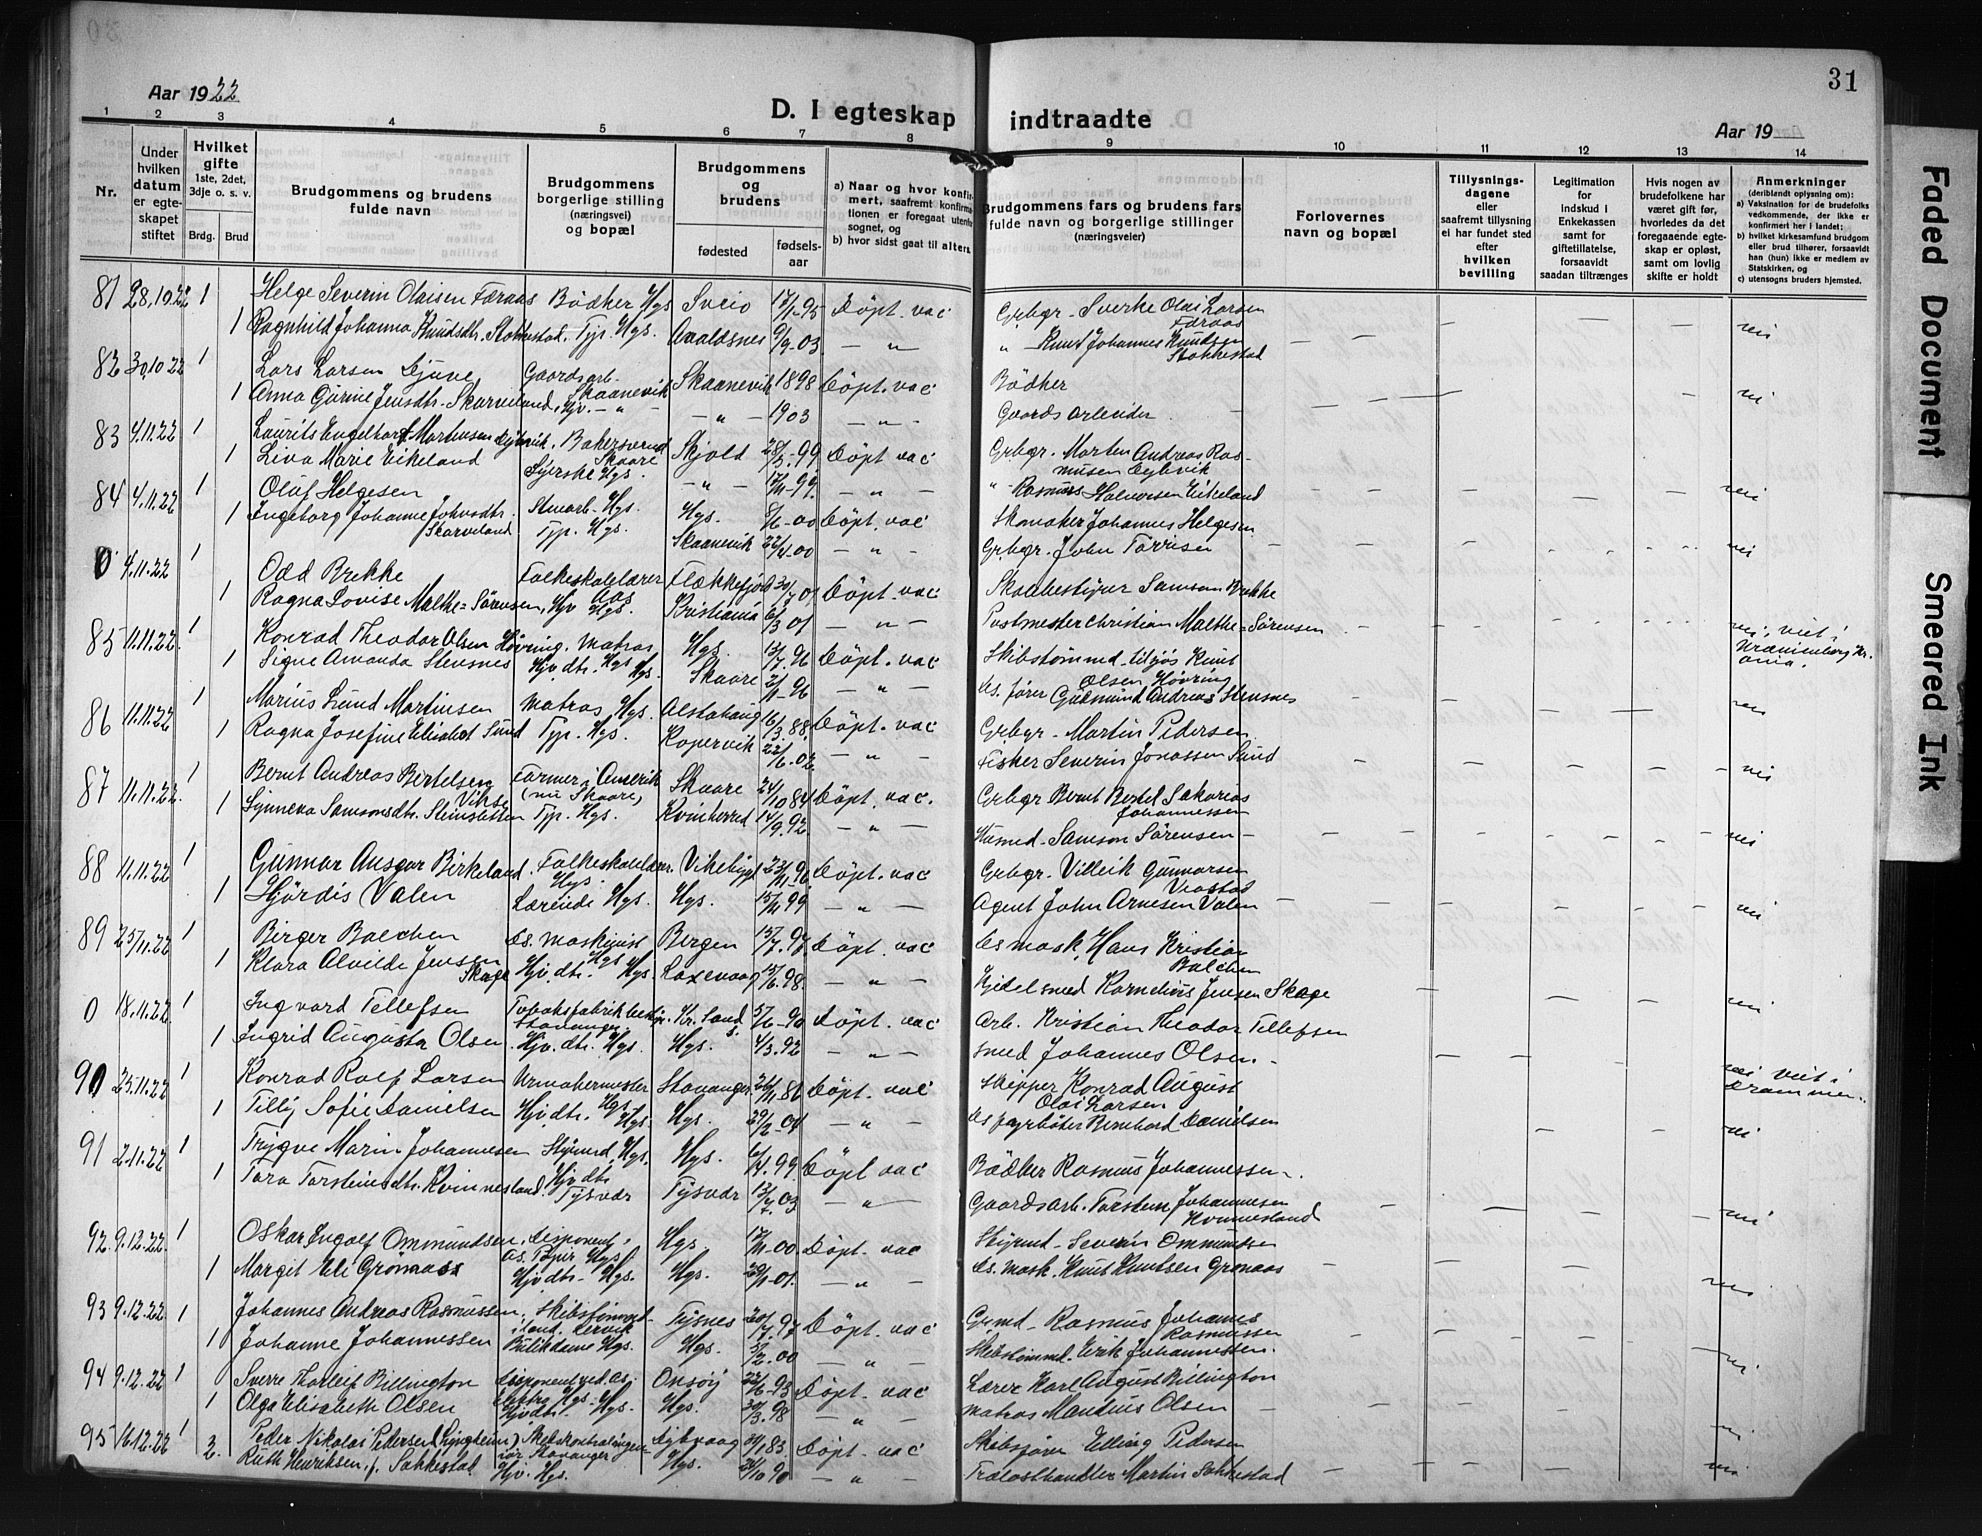 Aar 1922
D. I egteskap indtraadte
31
Aar 19
1 2 3 4 5 6 7 8 9 10 11 12 13 14
Nr.
Under hvilken datum er egteskapet stiftet
Hvilket gifte 1ste, 2det, 3dje o. s. v.
Brdg. Brud
Brudgommens og brudens fulde navn
Brudgommens borgerlige stilling (næringsvei) og bopæl
Brudgommens og brudens
fødested
fødselsaar
a) Naar og hvor konfirmert, saafremt konfirmationen er foregaat utenfor sognet, og
b) hvor sidst gaat til alters.
Brudgommens fars og brudens fars fulde navn og borgerlige stillinger (næringsveier)
Forlovernes navn og bopæl
Tillysningsdagene eller saafremt tillysning ei har fundet sted efter hvilken bevilling
Legitimation for indskud i Enkekassen samt for giftetillatelse, forsaavidt saadan tiltrænges
Hvis nogen av brudefolkene har været gift før, hvorledes da det foregaaende egteskap er opløst, samt om lovlig skifte er holdt
Anmerkninger (deriblandt oplysning om):
a) Vaksination for de brudefolks vedkommende, der ikke er konfirmert her i landet:
b) hvilket kirkesamfund brudgom eller brud tilhører, forsaavidt han (hun) ikke er medlem av Statskirken, og
c) utensogns bruders hjemsted.
81 28.10.22 1 Helge Severin Olaisen Færaas Bødker Hgs Sveio 17/1-95 Döpt. vac Grbgr. Sverke Olai Larsen Færaas
1 Ragnhild Johanna Knudsdtr. Stokkestad. Typ. Hgs. Avaldsnes 9/9-03 — " — " Knut Johannes Knudsen Stokkestad — — — — — nei
82 30.10.22 1 Lars Larsen Djuve Gaardsarb. Skaanevik Skaanevik 1898 Döpt. vac Bödker
1 Anna Gurine Jensdtr. Skarveland, Hjv. — " — — " — 1903 — " — Gaardsarbeider — nei
83 4.11.22 1 Laurits Engelhart Martinsen Dybvik. Bakersvend Skaare Skjold 28/3-99 Döpt vac Grbgr. Morten Andreas Rasmusen Dybvik
1 Liva Marie Eikeland Syerske Hgs. — " — 17/11-99. — " — " Rasmus Halvorsen Eikeland — nei
84 4.11.22 1 Oluf Helgesen Stuarb. Hgs. Hgs. 9/6-00 Döpt. vac Skomaker Johannes Helgesen
1 Ingeborg Johanne Johnsdtr. Skarveland Typ. Hgs. Skaanevik 22/4-00 — " — Grbgr. John Tørrisen — nei
0 4.11.22 1 Odd Brekke Folkeskolelærer Aas Flekkefjord 30/7-01 Döpt. vac Skolebestyrer Samson Brekke
1 Ragna Lovise Malthe=Sörensen, Hjv Hgs. Kristiania 6/3 01 — " — Postmester Christian Malthe=Sörensen — nei, viet i Uranienborg Kr.ania.
85 11.11.22. 1 Konrad Theodor Olsen Hövring. Matros Hgs Hgs. 13/7.96 Döpt. vac Skibstömmerd. Knut Olsen Hövring
1 Signe Amanda Stensnes Hjv. dtr. Hgs. Skaare 2/1-96 — " — Ds. fører Gudmund Andreas Stensnes — nei
86 11.11.22 1 Marius Lund Martinsen Matros Hgs. Alstahaug 16/3.88. Döpt. vac Grbgr. Martin Pedersen
1 Ragna Josefine Elisabet Sund Typ. Hgs. Kopervik 22/6.02 — " — Fisker Severin Jonassen Sund — nei
87 11.11.22. 1 Bernt Andreas Bertelsen Vikse Farmer i Amerik (nu Skaare) Skaare 24/10 84 Döpt. vac. Grbgr Bernt Bertel Sakarias Johannessen
1 Synneva Samsonsdtr. Steinsletten Typ. Hgs. Kvinherred 14/9.92 — " — Husmd. Samson Sörensen — nei
88 11.11.22 1 Gunnar Ansgar Birkeland. Folkeskolelær. Hgs. Vikebygd 23/11-96 Döpt. vac Grbgr. Villeik Gunnarsen
1 Hjördis Valen Lærerinde Hgs. Hgs. 15/11 99 — " — Agent John Arnesen Valen — nei
89 25/11.22 1 Birger Balchen Ds. maskinist Hgs Bergen 15/7.97. Döpt. vac Ds mask. Hans Kristian Balchen
1 Klara Alvilde Jensen Skage Hjv. dtr. Hgs. Laxevaag 15/6.98. — " — Kjedelsmed Kornelius Jensen Skage — nei
0 18.11.22. 1 Ingvard Tellefsen Tobaksfabrikbestyr. Stavanger Kr. Sand S. 5/6-90 Döpt. vac Arb. Kristian Theodor Tellefsen
1 Ingrid Augusta Olsen Hjv. dtr. Hgs. Hgs. 4/3.92 — " — Smed Johannes Olsen. — nei viet i Drammen.
90 25.11.22 1 Konrad Rolf Larsen Urmakermester Hgs. Stavanger 26/11 86 Döpt. vac Skipper Konrad August Olai Larsen
1 Tilly Sofie Danielsen Hjv. dtr. Hgs. Hgs. 29/2-04 — " — Ds fyrböter Danielsen — nei
91 2.11.22 1 Trygve Marin Johannesen Styrmd. Hgs. Hgs. 6/11.99 Döpt vac Bödker Rasmus Johannessen.
1 Tora Torsteinsdtr. Kvinnesland. Hjv dtr Tysvær Tysvær 13/7.03 — " — Gaardsarb. Torstein Johannesen Kvinnesland — nei
92. 9.12.22. 1 Oskar Ingolf Ommundsen. Disponent Hgs Hgs 17/11-00 Döpt. vac Styrmd. Severin Ommundsen
1 Margit Eli Grönaas Hjv dtr. Hgs. Hgs. 29/1-01. — " — Ds. mask. Knut Knutsen Gronaas — nei
93 9.12.22 1 Johannes Andreas Rasmussen. Skibstömmrd. Tysnes 20/7.97 Döpt. vac Grmd. Rasmus Johannes Rasmussen
1 Johanne Johannessen Butikdame Hgs. Hgs. 5/2-00 — " — Skibstömmd. Erik Johannessen. nei
94 9.12.22 1 Sverre Thorleif Billington Disponent ved As. Elektro Hgs. Onsöy 22/6-93 Döpt. vac Lærer Karl August Billington
1 Olga Elisabeth Olsen Hjv dtr. Hgs. Hgs. 30/3.98 — " — Matros Mandius Olsen — nei
95 16.12.22 1 Peder Nikolai Pedersen (Lyngheim) Stavanger Dybvaag 30/1 83. Döpt. vac Skibsfører Elling Pedersen
2. Ruth Henriksen, f. Sakkestad Hjv. Hgs. Hgs. 24/10 90 — " — Trælasthandler Martin Sakkestad nei
Faded Document
Smeared Ink